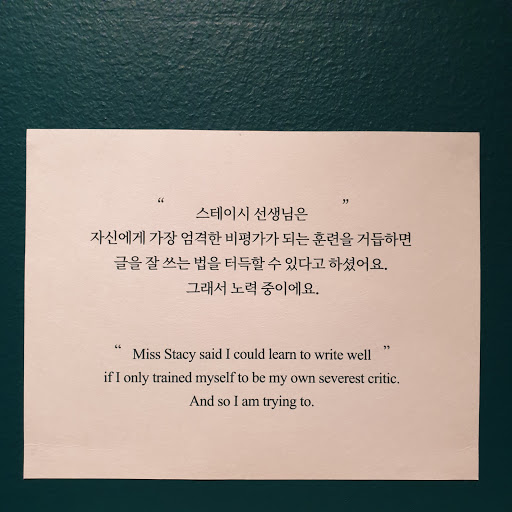 “ 스테이시 선생님은 ”
자신에게 가장 엄격한 비평가가 되는 훈련을 거듭하면
글을 잘 쓰는 법을 터득할 수 있다고 하셨어요.
그래서 노력 중이에요.
“ Miss Stacy said I could learn to write well ”
if I only trained myself to be my own severest critic.
And so I am trying to.